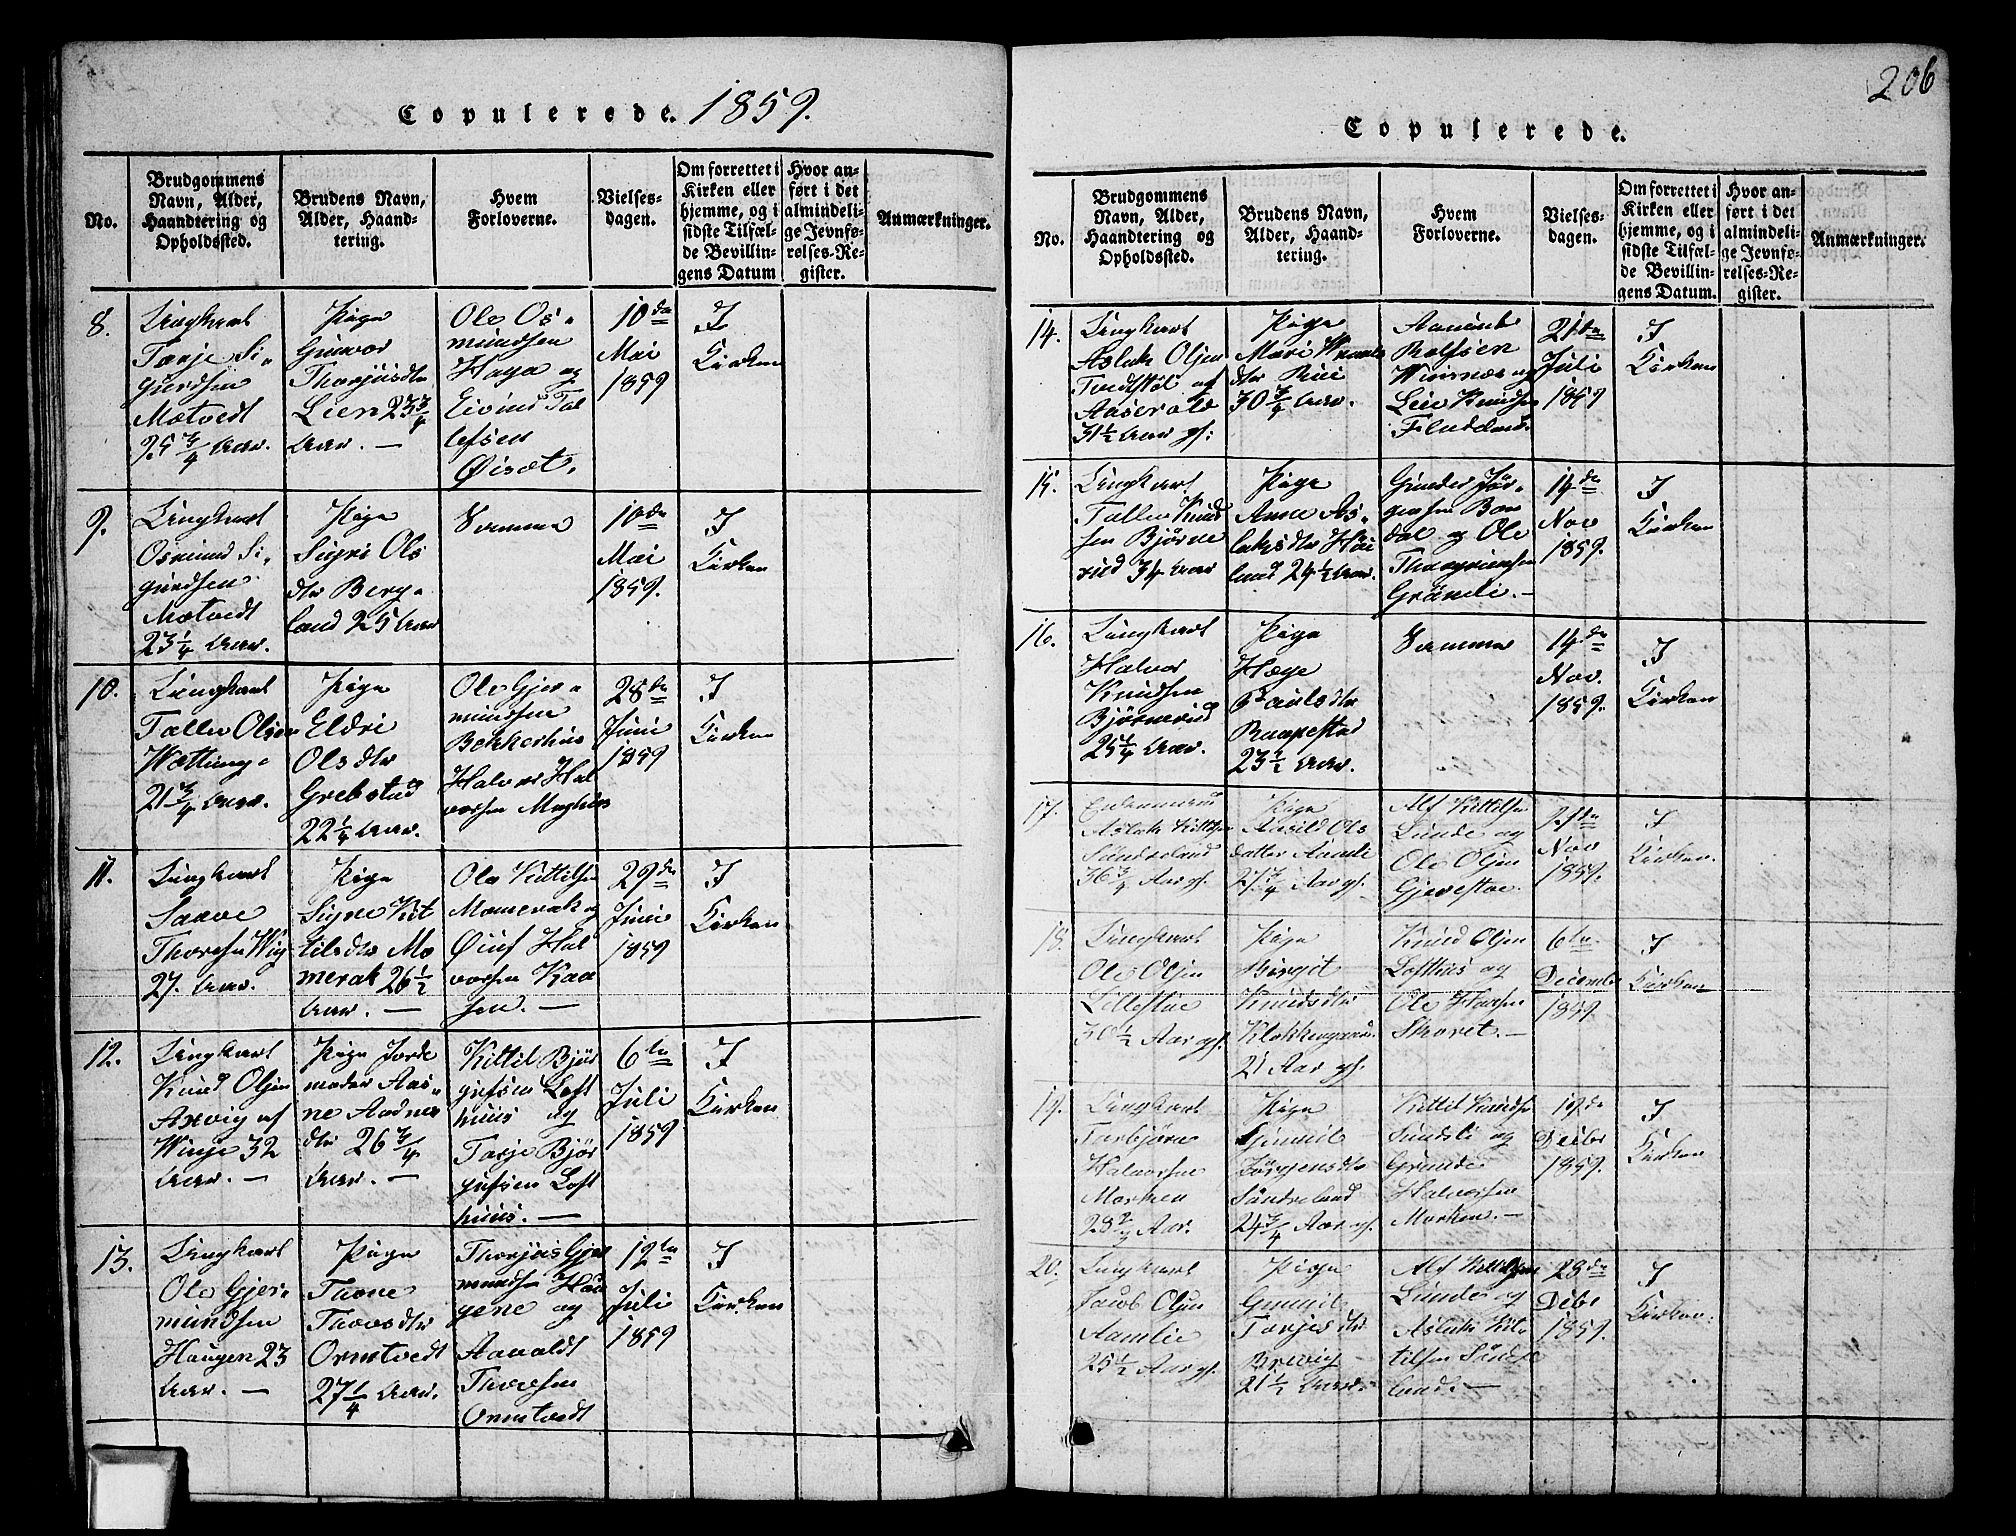 206
Copulerede. 1859.
No.
Brudgommens
Navn, Alder,
Haandtering og
Opholdssted.
Brudens Navn,
Alder, Haand-
tering.
Hvem
Forloverne.
Vielses-
dagen.
Om forrettet i
Kirken eller
hjemme, og i
sidste Tilfæl-
de Bevillin-
gens Datum
Hvor an-
ført i det
almindeli-
ge Jevnfø-
relses-Re-
gister.
Anmærkninger.
8.
Ungkarl
Tarje Si-
gurdsen
Mætvedt
25 3/4 Aar.
Pige
Gunvor
Thorjusdtr
Lien 23 3/4
Aar. —
Ole Os-
mundsen
Haga og
Eivind Tal
lefsen
Øisæt.
10de
Mai
1859
I
Kirken
9.
Ungkarl
Osmund Si-
gurdsen
Mætvedt
23 1/4 Aar.
Pige
Sigri Ols
dtr Berg-
land 25 Aar
Samme
10de
Mai
1859.
I
Kirken
10.
Ungkarl
Tallev Olsen
Wetting-
21 3/4 Aar.
Pige
Eldri
Olsdtr
Grebstad
22 1/4 Aar.
Ole Gjer-
mundsen
Bekkerhus
Halvor Hal
vorsen
28de
Juni
1859
I
Kirken
11.
Ungkarl
Saave
Thorsen Wig
27. Aar.
Pige
Signe Kit
tilsdtr Mo
merak 26 1/2
Aar. —
Ole Kittilsen
Momerak og
Øiuf Hal
vorsen Kaa
sen. —
29de
Juni
1859
I
Kirken
12.
Ungkarl
Knud Olsen
Axvig af
Winje 32
Aar. —
Pige Jorde
moder Aas-
ne Aadne
dtr 26 3/4
Aar. —
Kittil Bjør
gufsen Loft
huus og
Tarje Bjør
gufsen Loft
huus. —
6te
Juli
1859
I
Kirken
13.
Ungkarl
Ole Gjer-
mundsen
Haugen 23
Aar. —
Pige
Thone
Thorsdtr
Ormtvedt
27 1/4 Aar.
Thorjus Gjer
mundsen Hau
gene og
Aavaldt
Thorsen
Ormtvedt
12te
Juli
1859
I
Kirken
Copulerede.
No.
Brudgommens
Navn, Alder,
Haandtering og
Opholdssted.
Brudens Navn,
Alder, Haand-
tering.
Hvem
Forloverne.
Vielses-
dagen.
Om forrettet i
Kirken eller
hjemme, og i
sidste Tilfæl-
de Bevillin-
gens Datum.
Hvor an-
ført i det
almindeli-
ge Jevnfø-
relses-Re-
gister.
Anmærkninger.
14.
Ungkarl
Aslak Olsen
af
Aaserald
31 1/2 Aar gl:
Pige
Mari
dtr Rui
30 3/4 Aar.
Aanund
Rolfsen
og
Leiv Knudsen
21de
Juli
1859
I
Kirken
15.
Ungkarl
Tallev Knud
sen Bjørne
rud 34 Aar
Pige
Anne As-
laksdtr Høi
land 24 1/2 Aar.
Gunder Jør-
gensen Bon
dal og Ole
Grønli. —
14de
Nov
1859.
I
Kirken
16.
Ungkarl
Halvor
Knudsen
Bjørnerud
25 1/4 Aar.
Pige
Hæge
Paulsdtr
Raapestad
23 1/2 Aar.
Samme
14de
Nov.
1859.
I
Kirken
17.
Enkemand
Aslak Kittilsen
Sundreland
36 3/4 Aar gl.
Pige
Aasild Ols
datter Aamli
27 3/4 Aar gl.
Alf Kittilsen
Lunde og
Ole Olsen
Gjevestøe.
21de
Nov
1859.
I
Kirken.
18.
Ungkarl
Ole Olsen
Lillestøe
30 1/2 Aar gl.
Pige
Birgit
Knudsdtr
21 Aar gl.
Knud Olsen
Lofthus og
Ole
Skoret. —
6te
December
1859.
I
Kirken
19.
Ungkarl
Torbjørn
Halvorsen
Morken
Aar.
Pige
Gunnil
Jørgensdtr
Sundreland
24 3/4 Aar gl.
Kittil Knudsen
Sundsli og
Grunde
Halvorsen
Morken. —
19de
Decbr
1859.
I
Kirken
20.
Ungkarl
Jacob Olsen
Aamlie
25 1/2 Aar gl.
Pige
Gunnil
Tarjesdtr
Brevig
21 1/2 Aar.
Alf Kittilsen
Lunde og
Aslak Kit-
tilsen Sundre
land. —
28de
Decbr
1859.
I
Kirken.